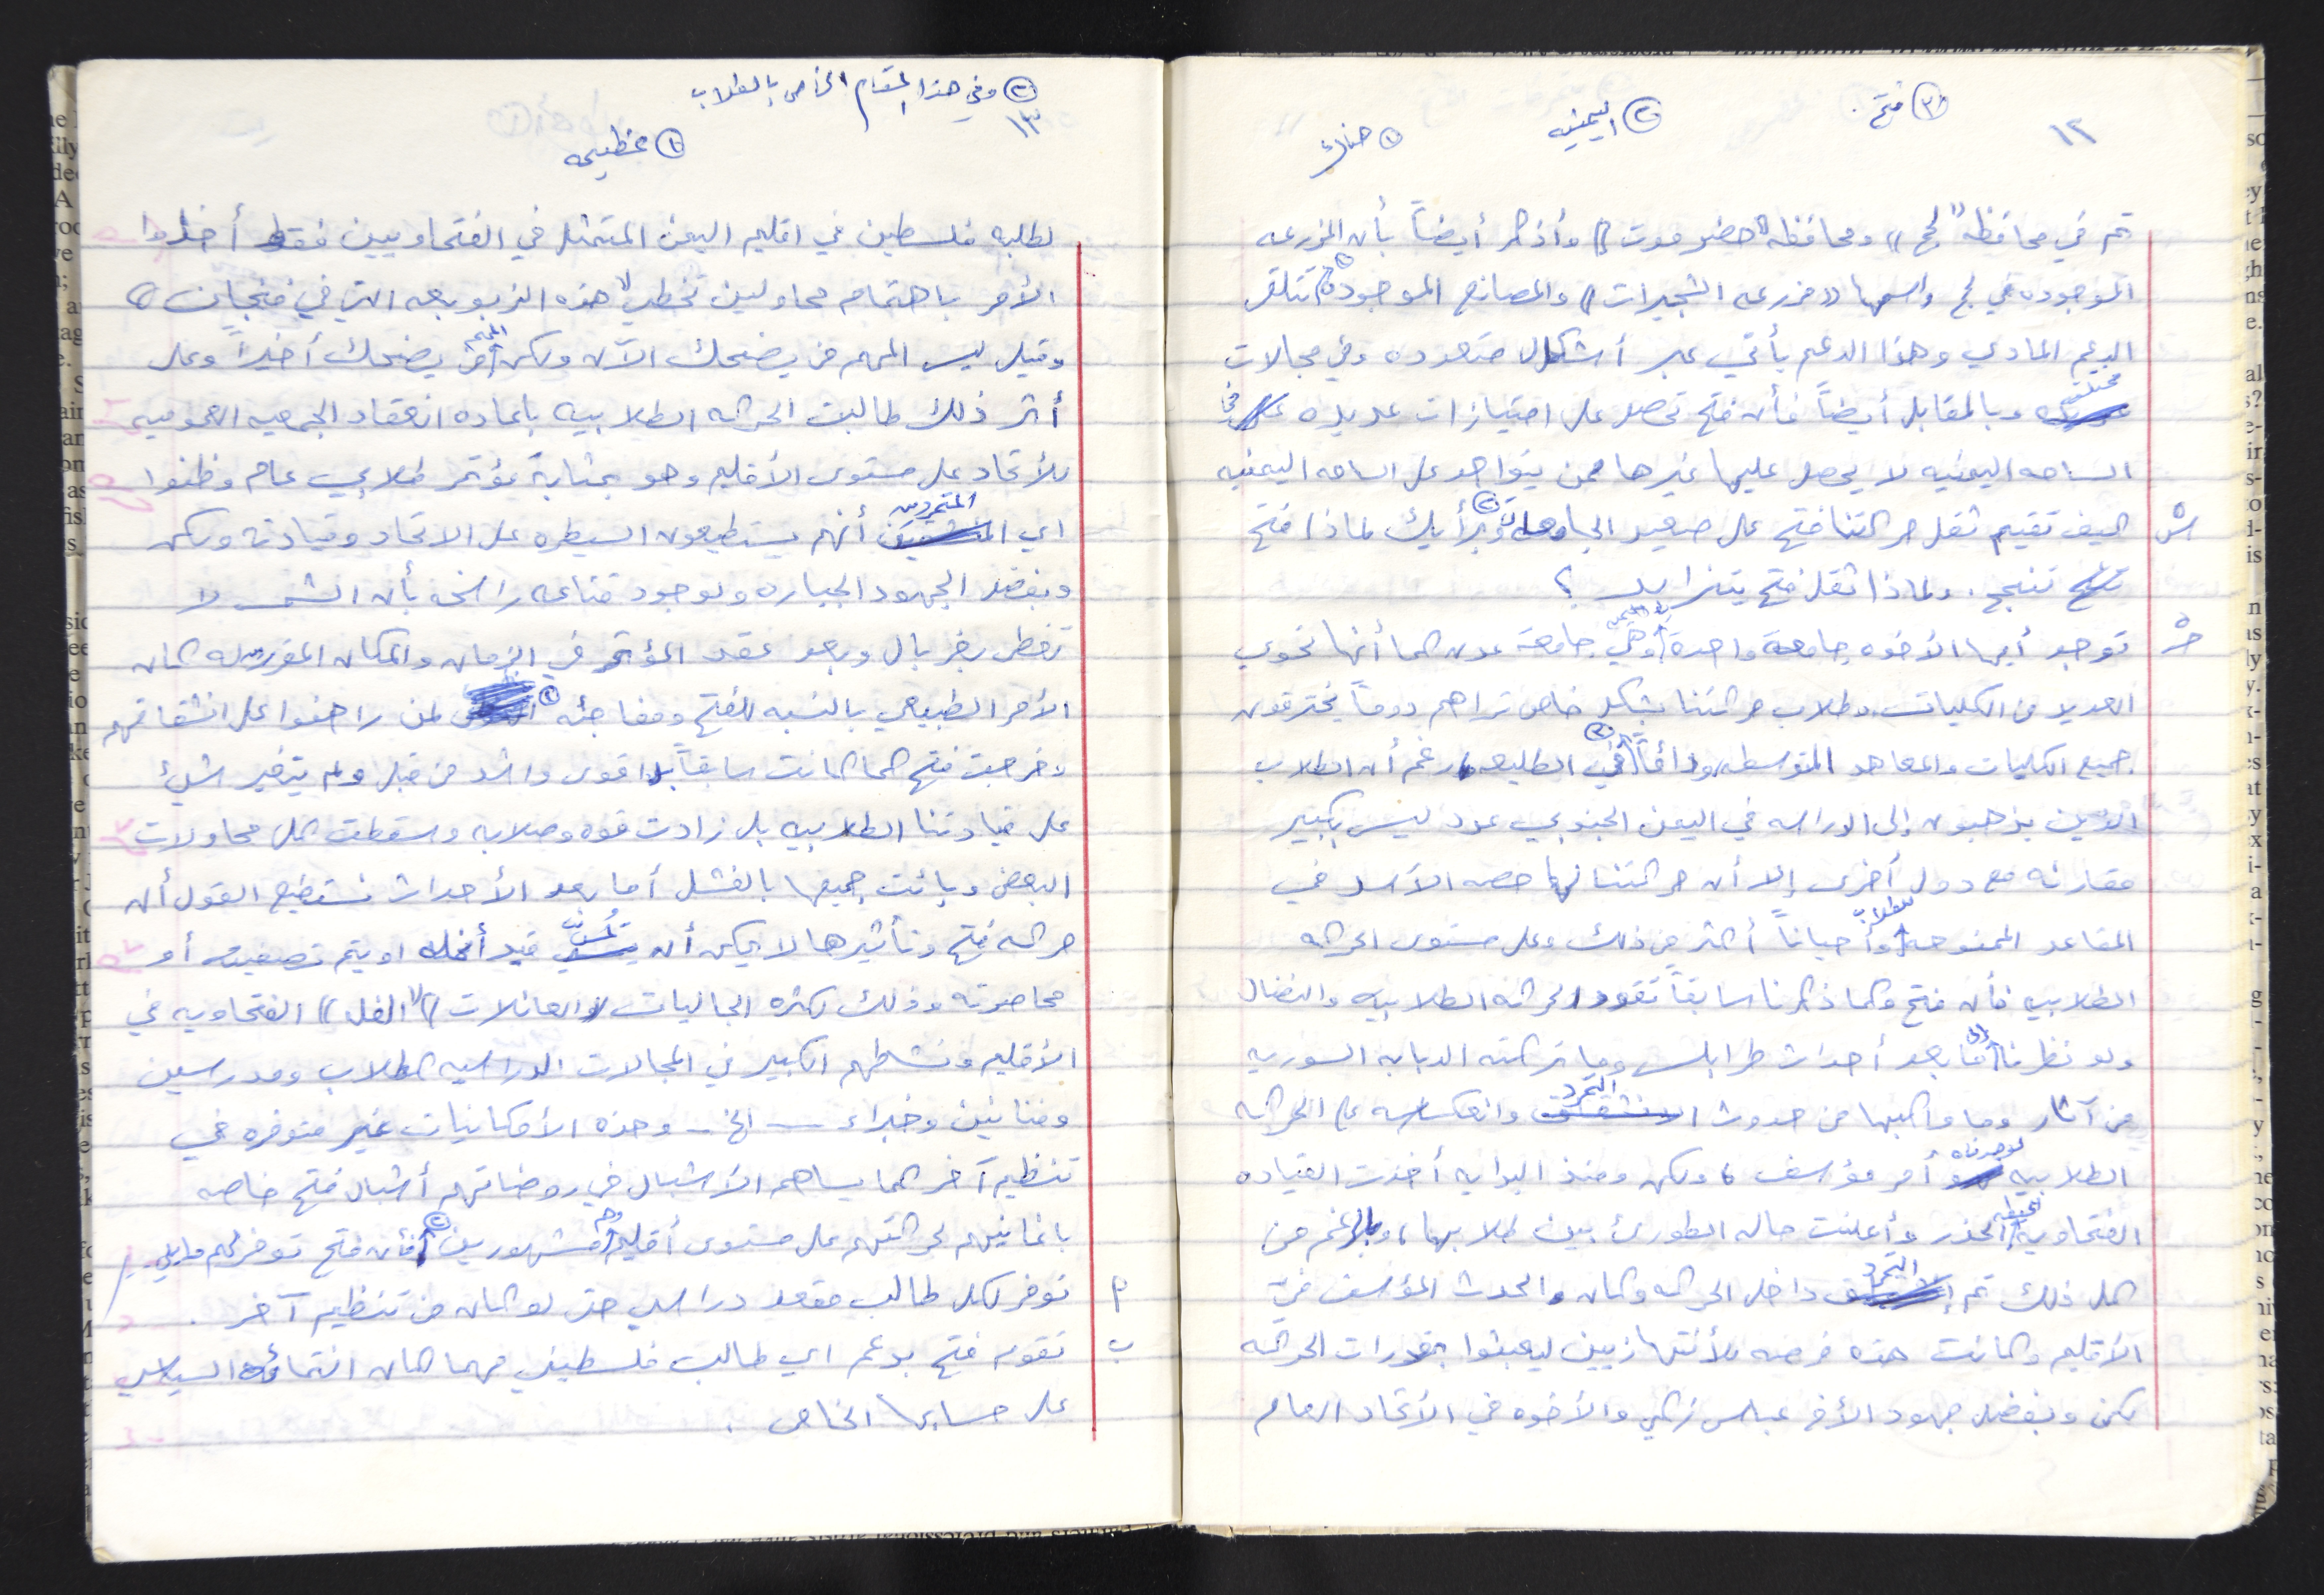 ١٢
③ فتح .
② اليمنيه
① هناك
تم في محافظة "لحج" ومحافظه "حضرموت" وأذكر أيضاً بأن المزرعه
الموجوده في لحج واسمها "مزرعه الشجيرات" والمصانع الموجودة ① تتلقى
الدعم المادي وهذا الدعم يأتي عبر أشكال متعدده وفي مجالات
مختلفه وبالمقابل أيضاً فأن فتح تحصل على امتيازات عديده في
الساحه اليمنيه لا يحصل عليها غيرها ممن يتواجد على الساحه اليمنيه
س كيف تقيم ثقل حركتنا فتح على صعيد الجامعات ② وبرأيك لماذا فتح
تنجح . ولماذا ثقل فتح يتزايد ؟
جـ توجد أيها الأخوه جامعة واحدة وهي جامعة عدن كما أنها تحوي
العديد من الكليات وطلاب حركتنا بشكل خاص تراهم دوماً يخترقون
جميع الكليات والمعاهد المتوسطه ودائماً ③ في الطليعه رغم أن الطلاب
الذين يذهبون إلى الدراسه في اليمن الجنوبي عدد ليس بكبير
مقارنه مع دول أخرى إلا أن حركتنا لها حصه الأسد في
المقاعد الممنوحه للطلاب وأحياناً أكثر من ذلك وعلى مستوى الحركه
الطلابيه فأن فتح وكما ذكرنا سابقاً تقود الحركه الطلابيه والنضال
ولو نظرنا إلى ما بعد أحداث طرابلس وما تركته الدبابه السوريه
من آثار وما واكبها من حدوث التمرد وانعكاسه على الحركه
الطلابيه لوجدناه أمر مؤسف ، ولكن ومنذ البدايه أخذت القياده
الفتحاويه الحذر وأعلنت حاله الطورئ بين طلابها ، وبالرغم من
كل ذلك تم التمرد داخل الحركه وكان والحدث المؤسف في
الأقليم وكانت هذه فرصه للأنتهازيين ليعبثوا بقدرات الحركه
لكن وبفضل جهود الأخ عباس زكي والأخوه في الأتحاد العام
② وفي هذا المقام الخاص بالطلاب
١٣
① عظيمه
لطلبه فلسطين في اقليم اليمن المتمثل في الفتحاويين فقط أخذوا
الأمر باهتمام محاولين تخطي "هذه الزوبعه التي في فنجان"
وقيل ليس المهم من يضحك الآن ولكن المهم من يضحك أخيراً وعلى
أثر ذلك طالبت الحركه الطلابيه باعاده انعقاد الجمعيه العموميه
للأتحاد على مستوى الأقليم وهو بمثابة مؤتمر طلابي عام وظنوا
اي المتمردين أنهم يستطيعون السيطره على الاتحاد وقيادته ولكن
وبفضل الجهود الجباره ولوجود قناعه راسخه بأن الشمس لا
تغطى بغربال وبعد عقد المؤتمر في الزمان والمكان المقرر له كان
الأمر الطبيعي بالنسبه لفتح ومفاجئه ① لمن راهنوا على انشقاقهم
وخرجت فتح كما كانت سابقاً بل اقوى واشد من قبل ولم يتغير شيئ
على قيادتنا الطلابيه بل زادت قوه وصلابه وسقطت كل محاولات
البعض وبائت جميعها بالفشل أما بعد الأحداث نستطيع القول أن
حركه فتح وتأثيرها لا يمكن أن تُمس قيد أنمله او يتم تصفيته أو
محاصرته وذلك لكثره الجاليات والعائلات "الفل" الفتحاويه في
الأقليم ونشاطهم الكبير في المجالات الدراسيه كطلاب ومدرسين
وفنانين وخبراء ـــ الخ ـ وهذه الأمكانيات غير متوفره في
تنظيم آخر كما يساهم الأشبال في روضاتهم أشبال فتح خاصه
باغانيهم لحركتهم على مستوى أقليم وهم مشهورين ② فأن فتح توفر لهم مايلي :
أ توفر لكل طالب مقعد دراسي حتى لو كان من تنظيم آخر .
ب تقوم فتح بدعم اي طالب فلسطيني مهما كان انتمائه السياسي
على حسابها الخاص .